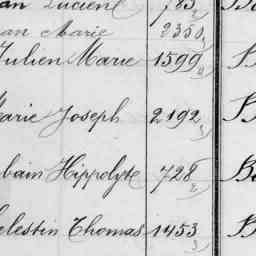 an Lucien 783 2
an Marie 2350 3
Julien Marie 1599 4
arie Joseph 2192 3
bain Hippolyte 728 2
elestin Thomas 1453 3